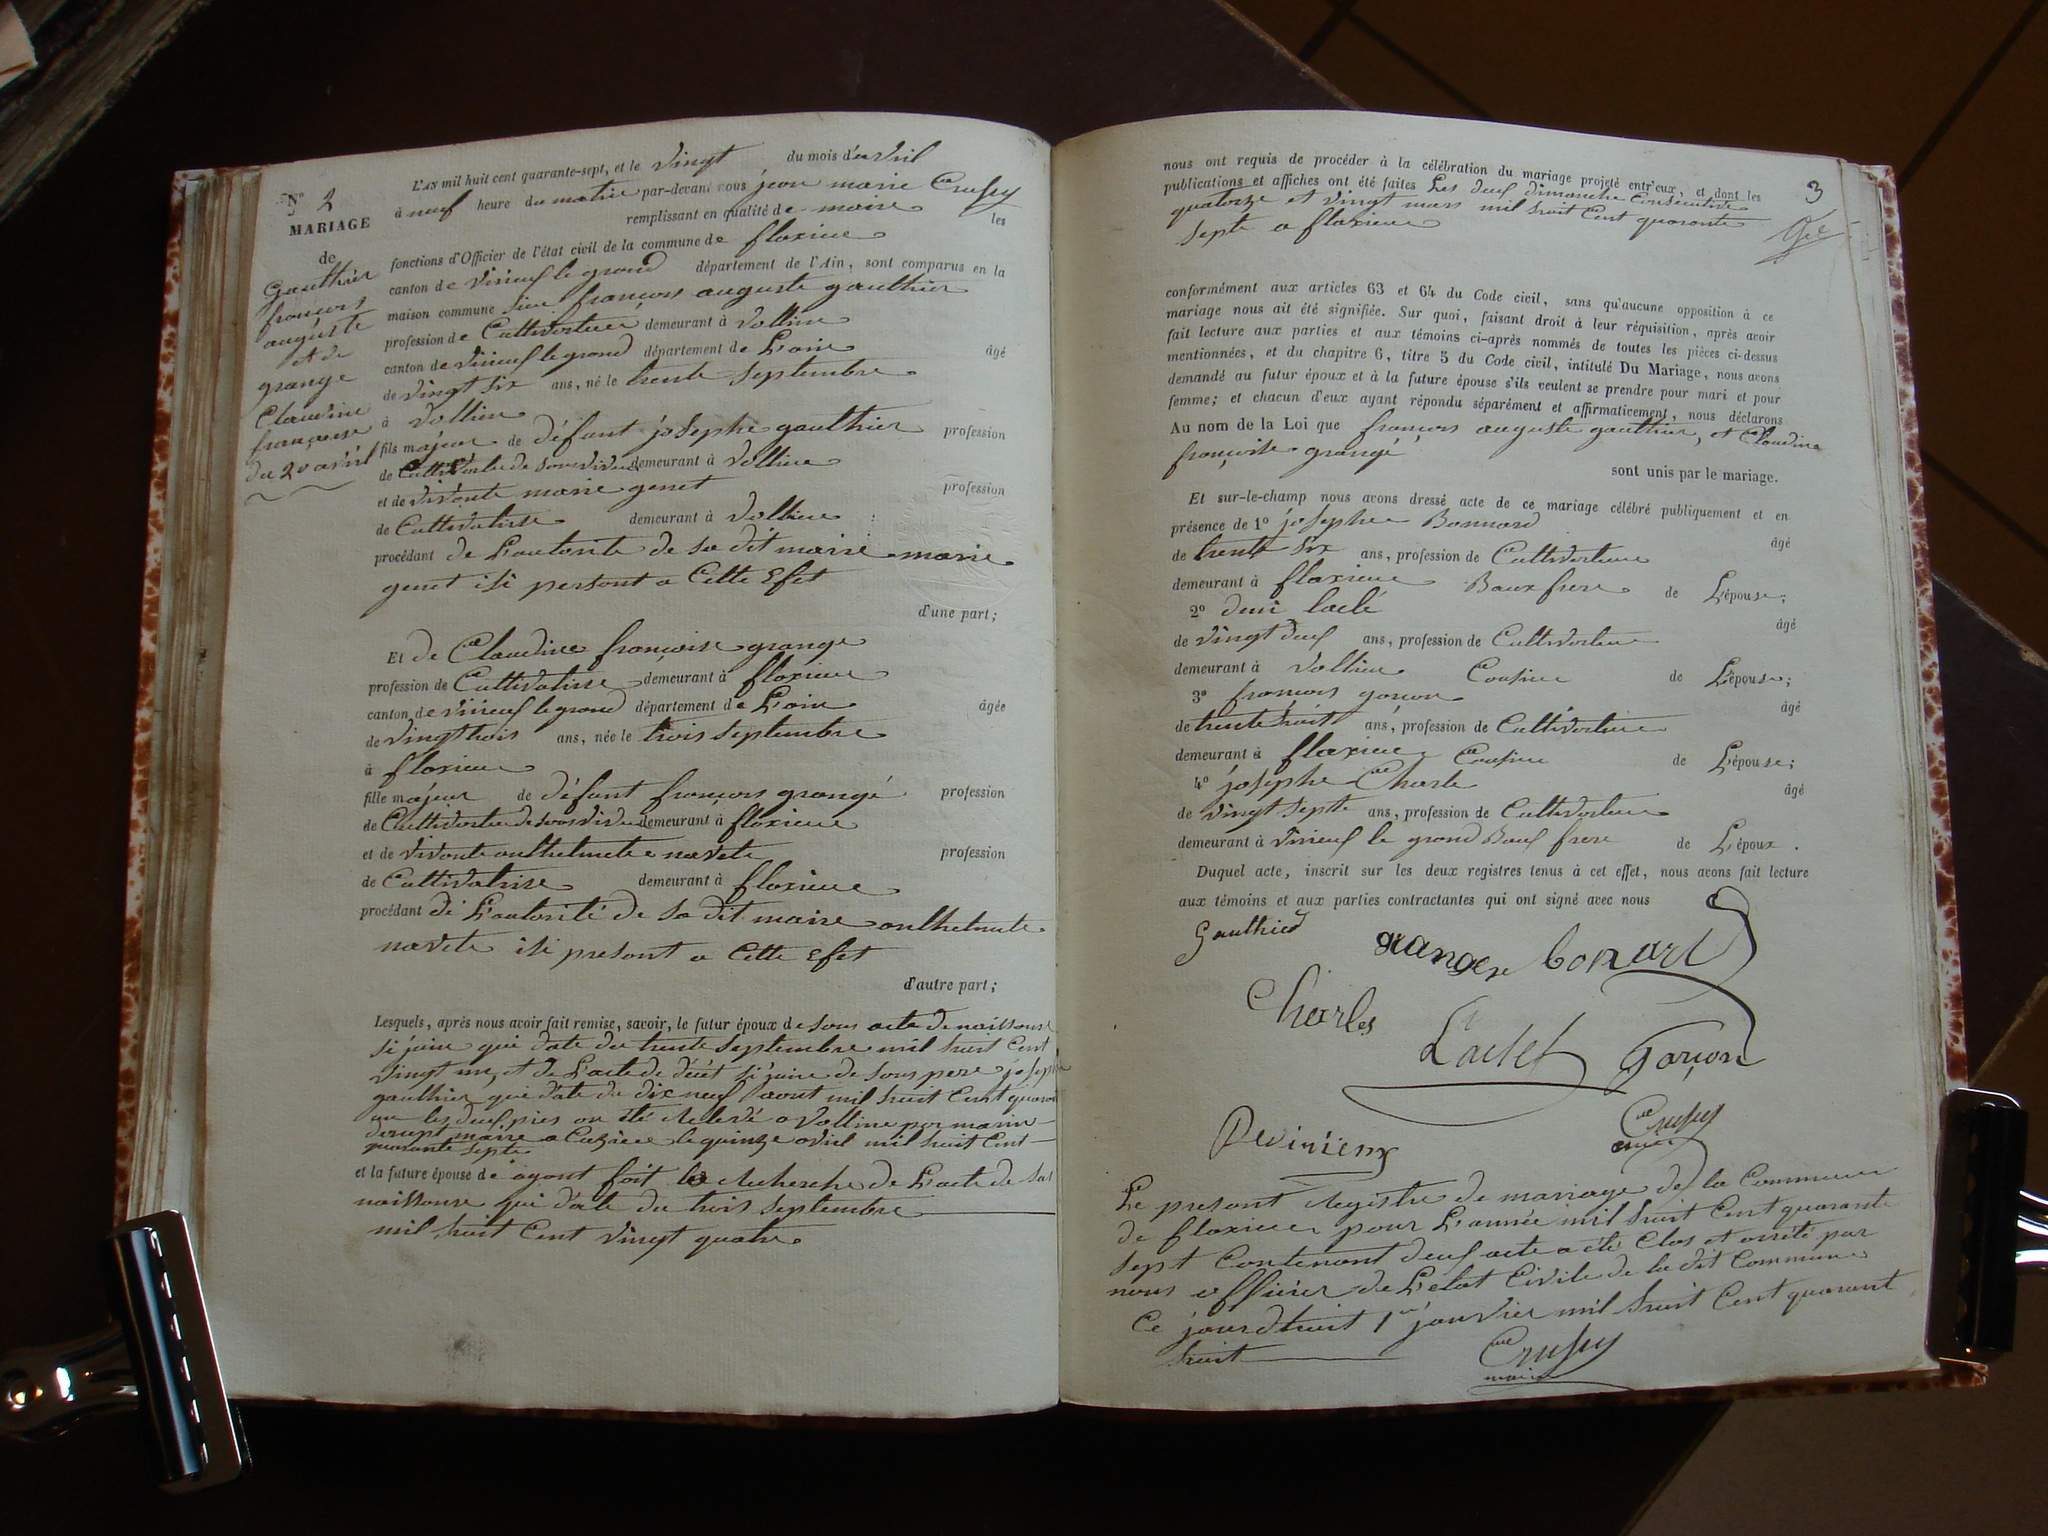 N° 2
MARIAGE
de
Gauthier
françois
auguste
et de
grange
Claudine
françoise
du 20 avril
L'AN mil huit cent quarante-sept, et le vingt du mois d'avril
à neuf heure du matin par-devant nous jean marie Crussy
remplissant en qualité de maire les
fonctions d'Officier de l'état civil de la commune de flaxieu
canton de virieu le grand département de l'Ain, sont comparus en la
maison commune sieur françois auguste gauthier
profession de Cultivateur demeurant à vollien
canton de virieu le grand département de L'ain âgé
de vingt six ans, né le trente septembre
à vollien
fils majeur de défunt josephe gauthier profession
de Cultivateur de son vivant demeurant à vollien
et de vivante marie genet profession
de Cultivatrise demeurant à vollien
procédant de L'autorité de sa dit maire marie
genet isi persont a Cette Efet
d'une part;
Et de Claudine françoise grange
profession de Cultivatrise demeurant à flaxieu
canton de virieu le grand département de L'ain âgée
de vingt trois ans, née le trois septembre
à flaxieu
fille majeur de défunt françois grangé profession
de Cultivateur de son vivant demeurant à flaxieu
et de vivante anthelmete navete profession
de Cultivatrise demeurant à flaxieu
procédant de L'autorité de sa dit maire anthelmete
navete isi present a Cette Efet
d'autre part;
Lesquels, après nous avoir fait remise, savoir, le futur époux de sous acte de naissanse
si joire qui date du trente septembre mil huit Cent
vingt un, et de L'acte de décet si joire de sous pere joseph
gauthier qui date du dix neuf aout mil huit Cent quaran
un les deux pies on été relevé a vollien par
maire a Cuzieu le quinze avril mil huit Cent
quarante septe
et la future épouse de ayant fait la recherche de L'acte de sa
naissanse qui date du trois septembre
mil huit Cent vingt quatre
3
nous ont requis de procéder à la célébration du mariage projeté entr'eux, et dont les
publications et affiches ont été faites Les deux dimanche Consecutive
quatorze et vingt mars mil huit Cent quarante
septe a flaxieu
conformément aux articles 63 et 64 du Code civil, sans qu'aucune opposition à ce
mariage nous ait été signifiée. Sur quoi, faisant droit à leur réquisition, après avoir
fait lecture aux parties et aux témoins ci-après nommés de toutes les pièces ci-dessus
mentionnées, et du chapitre 6, titre 5 du Code civil, intitulé Du Mariage, nous avons
demandé au futur époux et à la future épouse s'ils veulent se prendre pour mari et pour
femme; et chacun d'eux ayant répondu séparément et affirmativement, nous déclarons
Au nom de la Loi que françois auguste gauthier, et Claudine
françoise grangé
sont unis par le mariage.
Et sur-le-champ nous avons dressé acte de ce mariage célébré publiquement et en
présence de 1° josephe Bonnard âgé
de trente six ans, profession de Cultivateur
demeurant à flaxieu Baux frere de L'épouse;
2° deni laclé âgé
de vingt deux ans, profession de Cultivateur
demeurant à vollien Cousin de L'épouse;
3° françois gonon âgé
de trente huit ans, profession de Cultivateur
demeurant à flaxieu Cousin de L'épouse;
4° josephe Charle âgé
de vingt septe ans, profession de Cultivateur
demeurant à virieu le grand Baux frere de L'époux.
Duquel acte, inscrit sur les deux registres tenus à cet effet, nous avons fait lecture
aux témoins et aux parties contractantes qui ont signé avec nous
Gauthier
grange bonard
Charles
Laclet
Devirieux
Crussy
maire
Le present registre de mariage de la Commune
de flaxieu pour L'année mil huit Cent quarante
sept Contenant deux acte a été Clos et arrété par
nous officier de L'etat Civile de la dit Commune
Ce jourdhuit 1er janvier mil huit Cent quarant
huit
Crussy
maire